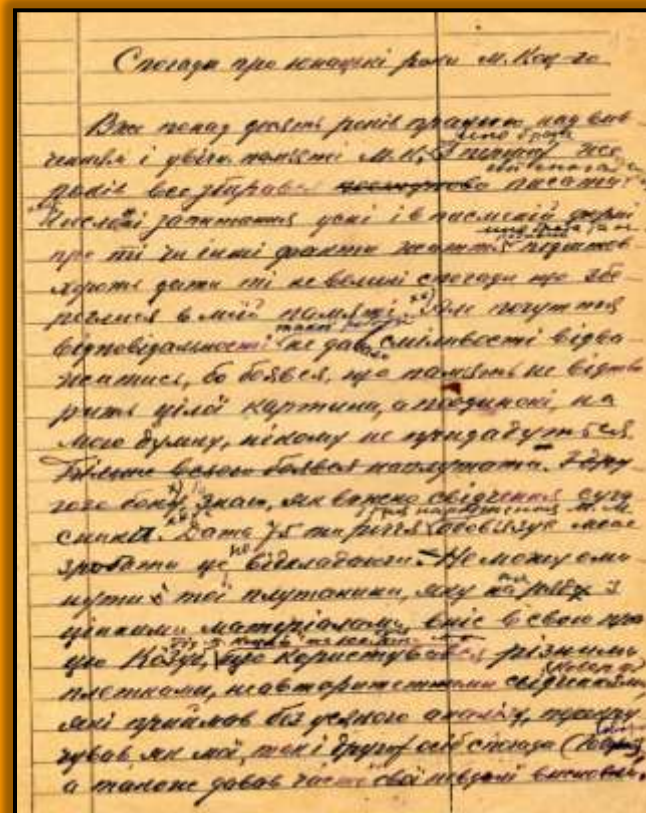 Спогади про юнацькі роки М. Коц-го
Вже понад десять років працюю над вив
мого брата
ченням і увічн. памяті М.К. З перших же
свої спогади
років все збирався писати
Численні запитання усні і в писмовій формі
про ті чи інші факти життя підштов
хують дати ті невеликі спогади що збе
реглися в моїй памяті. Але почуття
такої роботи
відповідальності не давало сміливості відва
житись, бо боявся, що память не відтво
рить цілої картини, а поодинокі, на
мою думку, нікому не придадуться.
Більше всього боявся наплутати. З дру
гого боку знаю, як важно свідчення суча
з дня народження М.М.
сника. Дата 75 ти річчя обовязує мене
зробити це не відкладаючи. Не можу оми
нути і тої плутанини, яку поряд з
цінними матеріалами, вніс в свою пра
цю Козуб, що користувався різними
плотками, неавторитетними свідченнями,
які приймав без усякого аналізу, перекру
чував як мої, так і других осіб спогади
а також давав часто свої невдалі висновки.